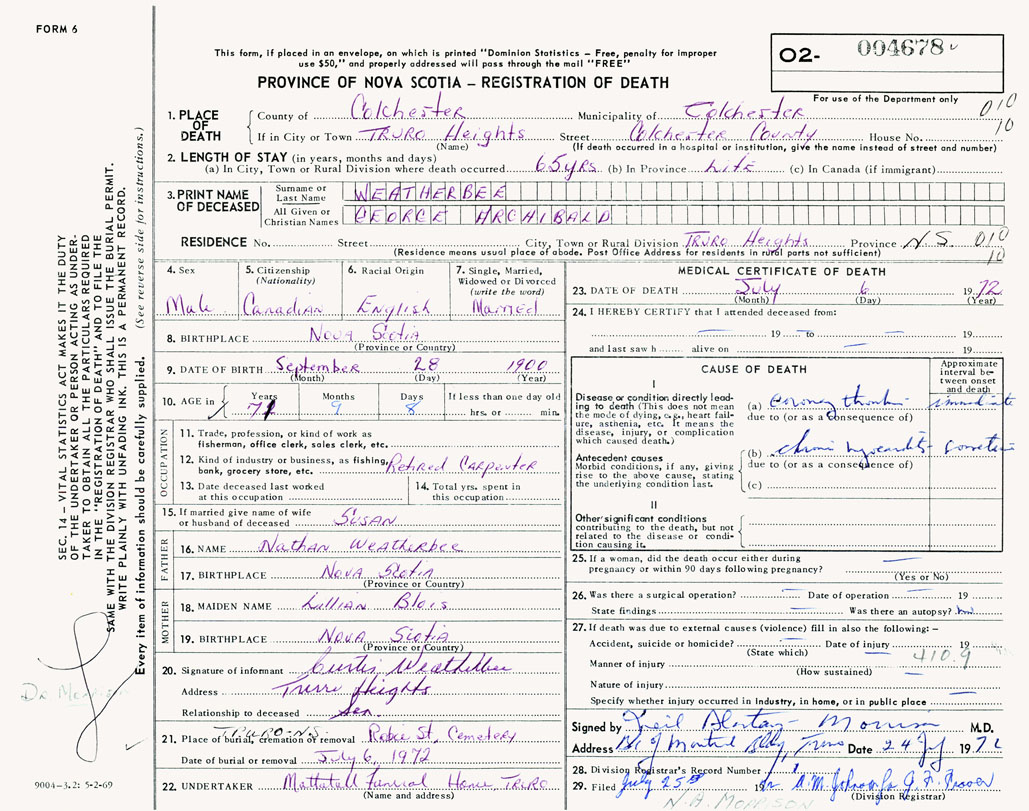 FORM 6
This form, if placed in an envelope, on which is printed "Dominion Statistics – Free, penalty for improper
use $50," and properly addressed will pass through the mail "FREE"
PROVINCE OF NOVA SCOTIA – REGISTRATION OF DEATH
O2- 004678
For use of the Department only
010
10
1. PLACE OF DEATH County of Colchester Municipality of Colchester
If in City or Town TRURO Heights Street Colchester County House No.
(Name) (If death occurred in a hospital or institution, give the name instead of street and number)
2. LENGTH OF STAY (in years, months and days)
(a) In City, Town or Rural Division where death occurred 65 yrs (b) In Province Life (c) In Canada (if immigrant)
3. PRINT NAME OF DECEASED Surname or Last Name WEATHERBEE
All Given or Christian Names GEORGE ARCHIBALD
RESIDENCE No. Street City, Town or Rural Division TRURO Heights Province N.S. 010
10
(Residence means usual place of abode. Post Office Address for residents in rural parts not sufficient)
4. Sex Male
5. Citizenship (Nationality) Canadian
6. Racial Origin English
7. Single, Married, Widowed or Divorced (write the word) Married
8. BIRTHPLACE Nova Scotia
(Province or Country)
9. DATE OF BIRTH September 28 1900
(Month) (Day) (Year)
10. AGE in Years 71 Months 9 Days 8 If less than one day old hrs. or min.
OCCUPATION
11. Trade, profession, or kind of work as fisherman, office clerk, sales clerk, etc.
12. Kind of industry or business, as fishing, bank, grocery store, etc. Retired Carpenter
13. Date deceased last worked at this occupation
14. Total yrs. spent in this occupation
15. If married give name of wife or husband of deceased SUSAN
FATHER
16. NAME Nathan Weatherbee
17. BIRTHPLACE Nova Scotia
(Province or Country)
MOTHER
18. MAIDEN NAME Lillian Blois
19. BIRTHPLACE Nova Scotia
(Province or Country)
20. Signature of informant Curtis Weatherbee
Address Truro Heights
Relationship to deceased Son
21. Place of burial, cremation or removal TRURO N.S. Robie St. Cemetery
Date of burial or removal July 6, 1972
22. UNDERTAKER Mattatall Funeral Home, TRURO
(Name and address)
MEDICAL CERTIFICATE OF DEATH
23. DATE OF DEATH July 6 1972
(Month) (Day) (Year)
24. I HEREBY CERTIFY that I attended deceased from:
19 to 19
and last saw h alive on 19
CAUSE OF DEATH
Approximate interval between onset and death
I
Disease or condition directly leading to death (This does not mean the mode of dying, e.g., heart failure, asthenia, etc. It means the disease, injury, or complication which caused death.)
(a) coronary immediate
due to (or as a consequence of)
Antecedent causes
Morbid conditions, if any, giving rise to the above cause, stating the underlying condition last.
(b)
due to (or as a consequence of)
(c)
II
Other significant conditions contributing to the death, but not related to the disease or condition causing it.
25. If a woman, did the death occur either during pregnancy or within 90 days following pregnancy?
(Yes or No)
26. Was there a surgical operation? Date of operation 19
State findings Was there an autopsy? no
27. If death was due to external causes (violence) fill in also the following: –
Accident, suicide or homicide? Date of injury 19
(State which) 410.9
Manner of injury
(How sustained)
Nature of injury
Specify whether injury occurred in industry, in home, or in public place
Signed by Neil Morrison M.D.
Address B. of Montreal Bldg, Truro Date 24 Jy 1972
28. Division Registrar's Record Number
29. Filed July 25th 19
(Division Registrar)
N.A. MORRISON
SEC. 14 – VITAL STATISTICS ACT MAKES IT THE DUTY
OF THE UNDERTAKER OR PERSON ACTING AS UNDER-
TAKER TO OBTAIN ALL THE PARTICULARS REQUIRED
IN THE "REGISTRATION OF DEATH" AND TO FILE THE
SAME WITH THE DIVISION REGISTRAR WHO SHALL ISSUE THE BURIAL PERMIT.
WRITE PLAINLY WITH UNFADING INK. THIS IS A PERMANENT RECORD.
Every item of information should be carefully supplied. (See reverse side for instructions.)
9004–3.2: 5-2-69